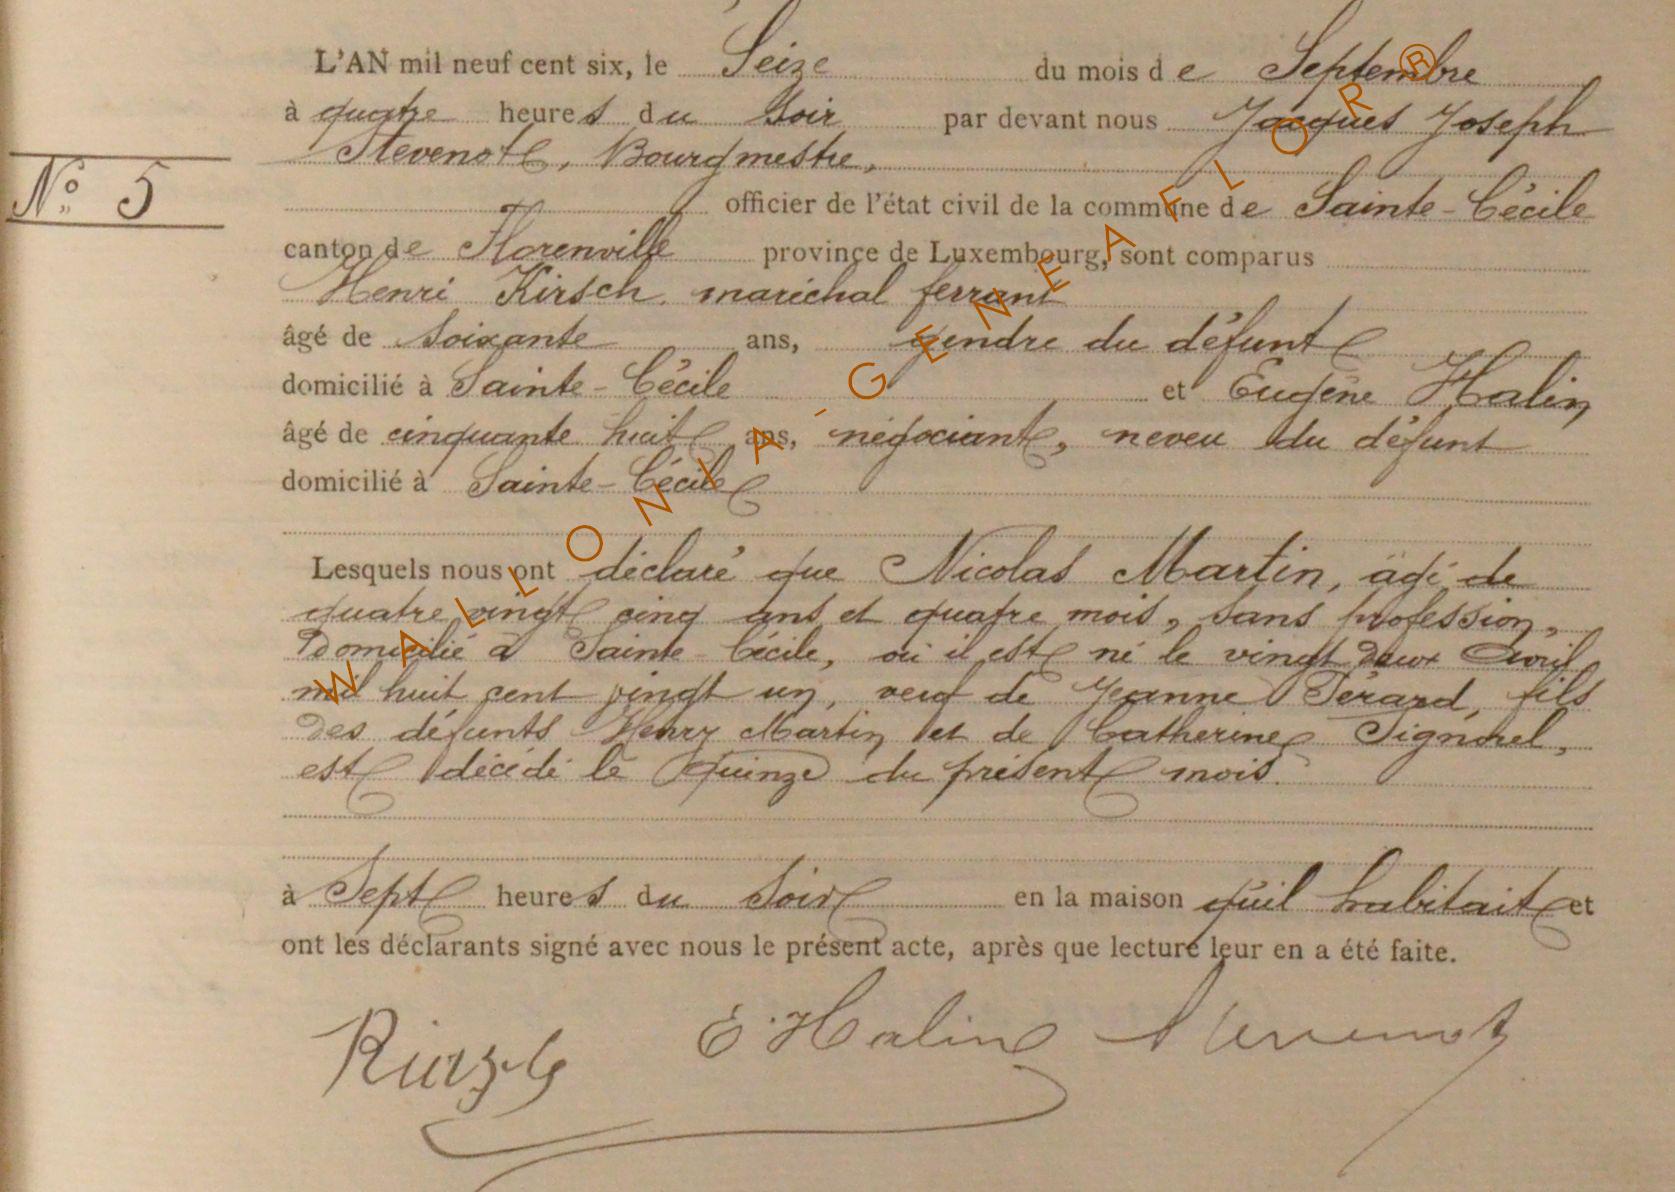 L'AN mil neuf cent six, le Seize du mois de Septembre
à quatre heures du Soir par devant nous Jacques Joseph
Stevenot, Bourgmestre,
N° 5
officier de l'état civil de la commune de Sainte-Cécile
canton de Florenville province de Luxembourg, sont comparus
Henri Kirsch maréchal ferrant
âgé de soixante ans, gendre du défunt
domicilié à Sainte-Cécile et Eugène Halin
âgé de cinquante huit ans, négociant, neveu du défunt
domicilié à Sainte-Cécile
Lesquels nous ont déclaré que Nicolas Martin, âgé de
quatre vingt cinq ans et quatre mois, sans profession,
Domicilié à Sainte Cécile, où il est né le vingt deux Avril
mil huit cent vingt un, veuf de Jeanne Pérard, fils
des défunts Henry Martin et de Catherine Tignorel,
est décédé le quinze du présent mois.
à Sept heures du Soir en la maison qu'il habitait et
ont les déclarants signé avec nous le présent acte, après que lecture leur en a été faite.
E. Halin Stevenot
WALLONIA-GENEAFLOR®